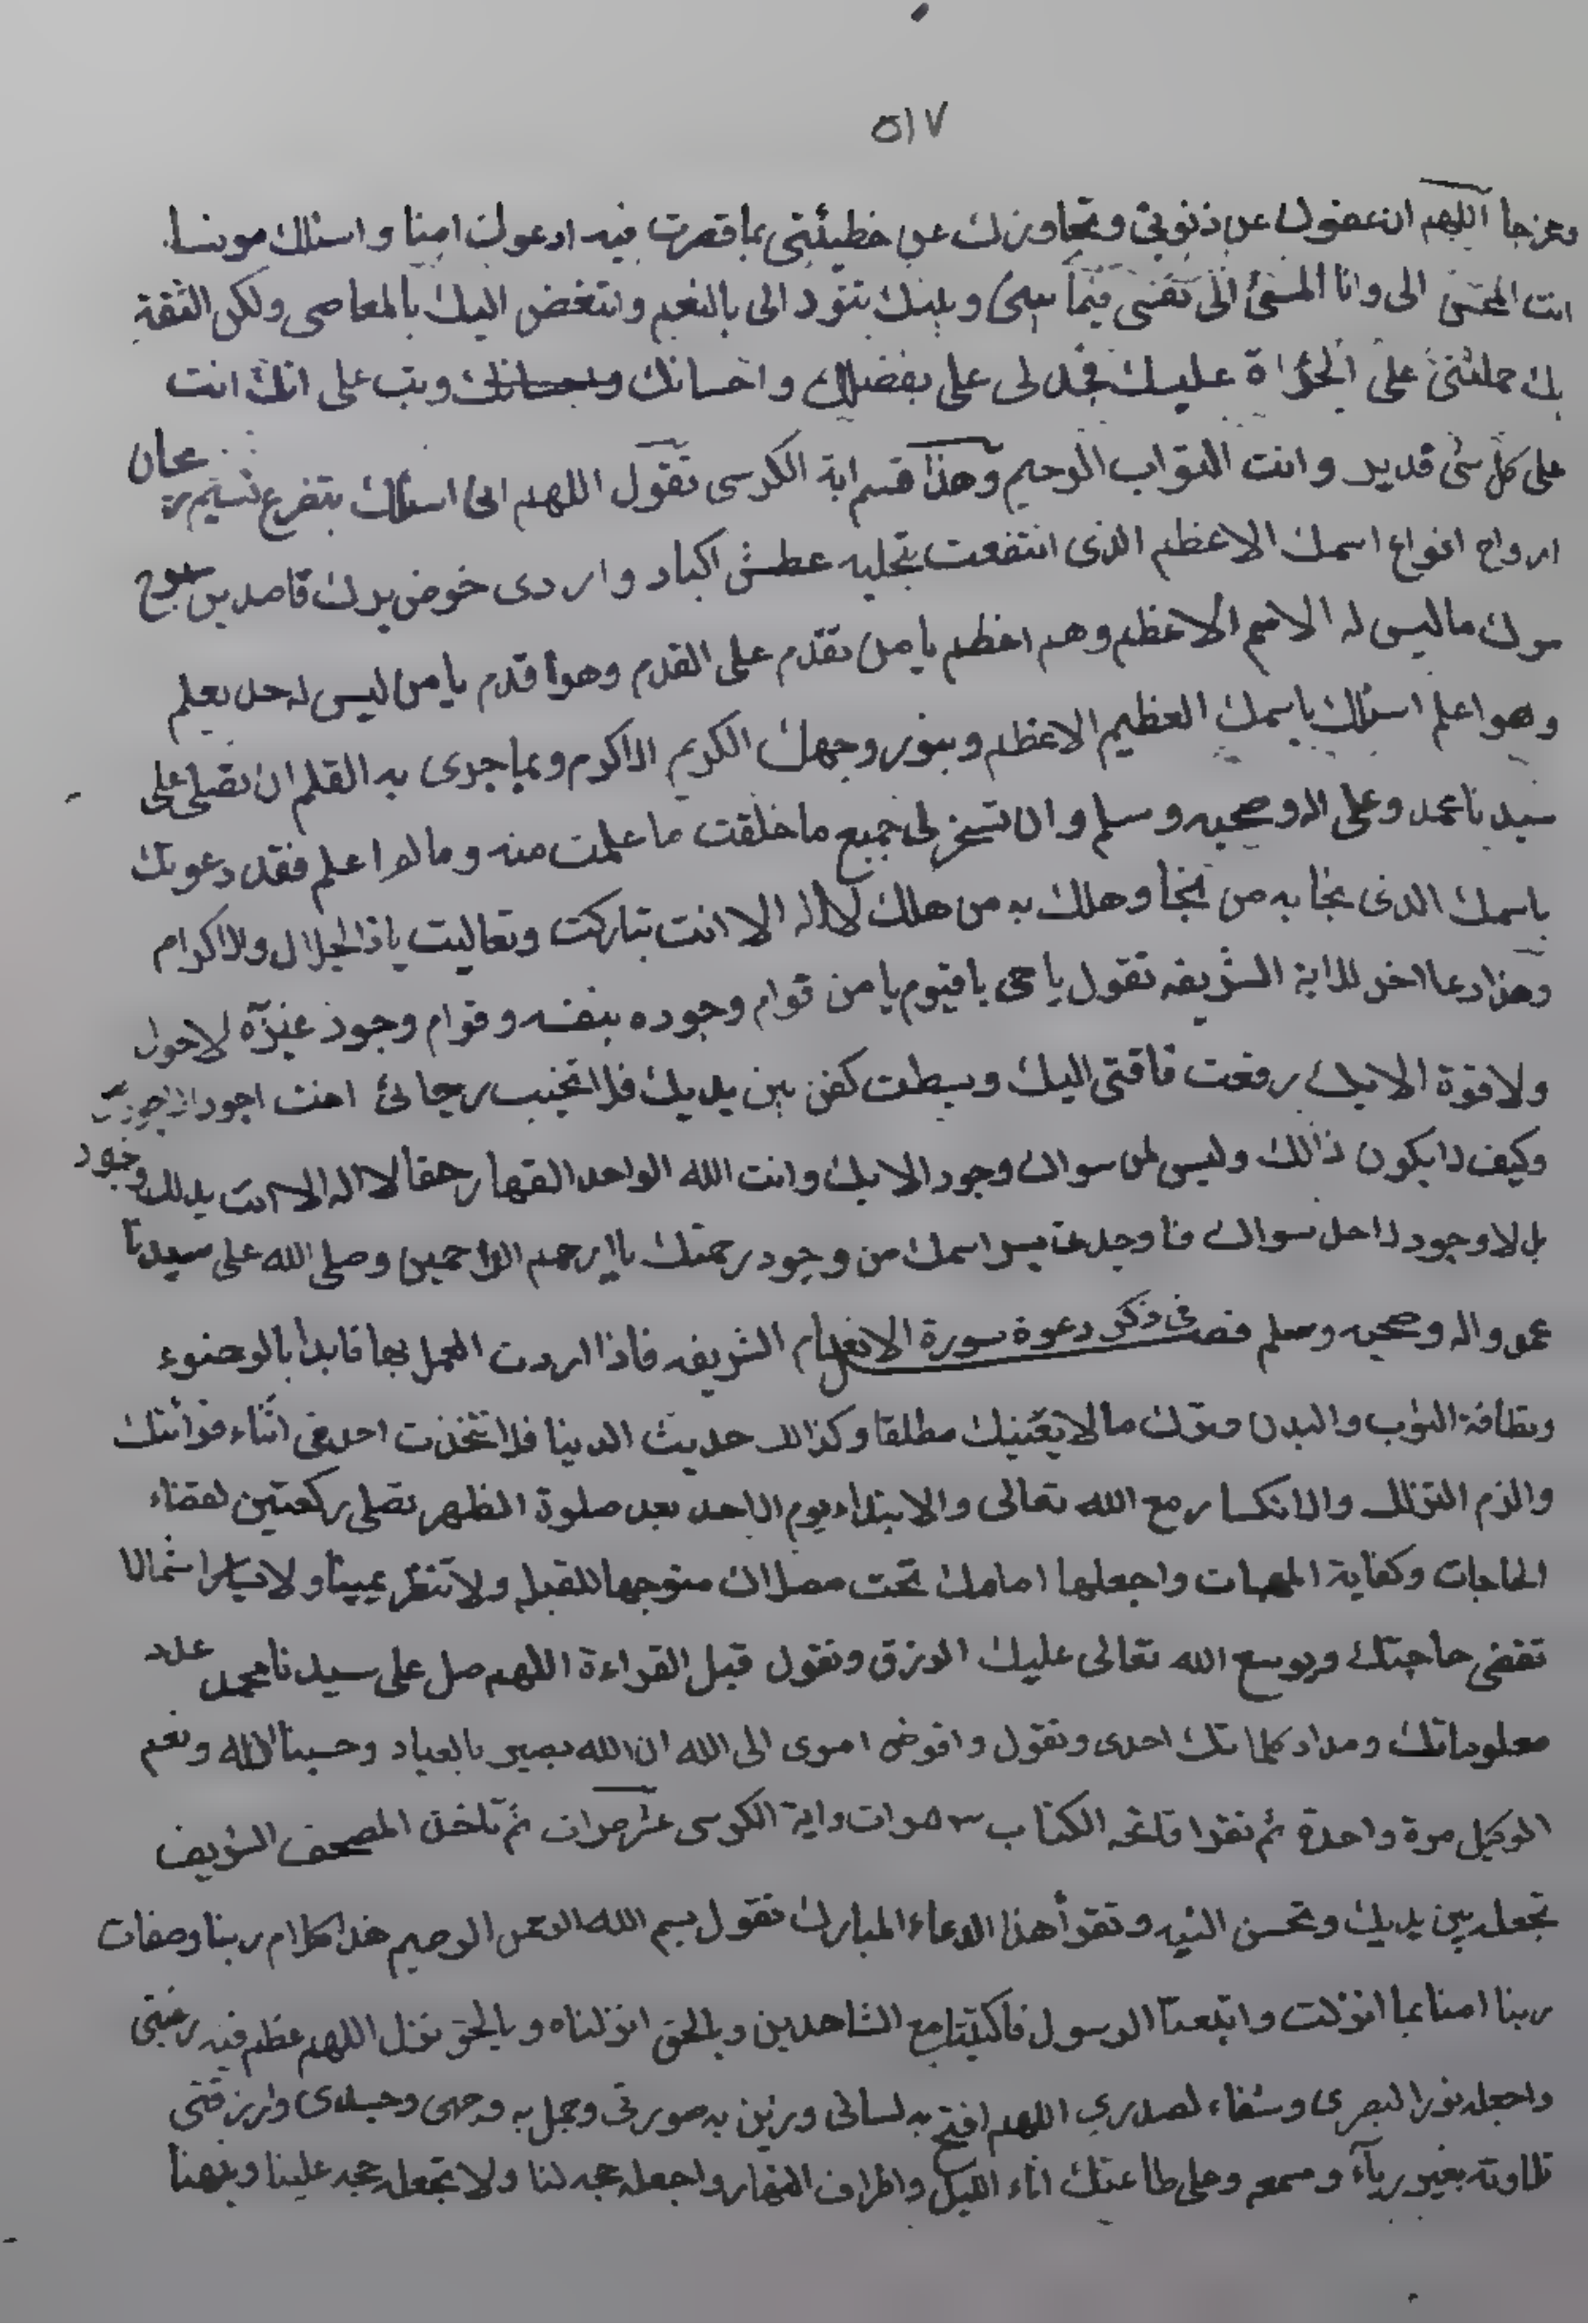 ٥١٧
ومخرجا اللهم ان عفوك عن ذنوبي وتجاوزك عن خطيئتي بما قصرت فيه ادعوك امنا واسئلك مونسا
انت المحسن الى وانا المسئ الى نفسى فيما بينى وبينك تتود الى بالنعم واتبغض اليك بالمعاصى ولكن الثقة
بك حملتنى على الجراة عليك فجد لى على بفضلك واحسانك وتب على انك انت
على كل شئ قدير وانت التواب الرحيم وهذا قسم اية الكرسى تقول اللهم انى اسئلك بتفرع نسيم
ارواح انواع اسمك الاعظم الذى انتفعت بتجليه عطش اكباد واردى خوض برك قاصدين
سرك ما ليس له الاسم الاعظم وهم اعظم يا من تقدم على القدم وهو اقدم يا من ليس لاحد يعلم
وهو اعلم اسئلك باسمك العظيم الاعظم وبنور وجهك الكريم الاكرم وبما جرى به القلم ان تصلى على
سيدنا محمد وعلى اله وصحبه وسلم وان تسخر لى جميع ما خلقت ما علمت منه وما لم اعلم فقد دعوتك
باسمك الذى نجا به من نجا وهلك به من هلك لا اله الا انت تباركت وتعاليت ياذا الجلال والاكرام
وهذا دعا اخر للاية الشريفه تقول يا حى يا قيوم يا من قوام وجوده بنفسه وقوام وجود غيره لا حول
ولا قوة الا بك رفعت فاقتى اليك وبسطت كفى بين يديك فلا تخيب رجائى انت اجود الاجودين
وكيف لا يكون ذالك وليس لمن سواك وجود الا بك وانت الله الواحد القهار حقا لا اله الا انت وجود
بل لا وجود لاحد سواك فاوجدنى بسر اسمك من وجود رحمتك يا ارحم الراحمين وصلى الله على سيدنا
محمد واله وصحبه وسلم فصل فى ذكر دعوة سورة الانعام الشريفه فاذا اردت العمل بها فابدا بالوضوء
ونظافة الثوب والبدن وترك ما لا يعنيك مطلقا وكذالك حديث الدنيا فلا تتخذت احد فى اثناء قرائتك
والزم التذلل والانكسار مع الله تعالى والابتداء يوم الاحد بعد صلوة الظهر تصلى ركعتين لقضاء
الحاجات وكفاية المهمات واجعلها امامك تحت مصلاك متوجها للقبله ولا تنظر يمينا ولا يسارا شمالا
تقضى حاجتك ويوسع الله تعالى عليك الرزق وتقول قبل القراءة اللهم صل على سيدنا محمد عدد
معلوماتك ومداد كلماتك احدى وتقول وافوض امرى الى الله ان الله بصير بالعباد وحسبنا الله ونعم
الوكيل مرة واحدة ثم تقرا فاتحه الكتاب ٣ مرات واية الكرسى عشر مرات ثم تاخذ المصحف الشريف
تجعله بين يديك وتحسن النيه وتقرأ هذا الدعاء المبارك تقول بسم الله الرحمن الرحيم هذا كلام ربنا وصفات
ربنا امنا بما انزلت واتبعنا الرسول فاكتبنا مع الشاهدين وبالحق انزلناه وبالحق نزل اللهم عظم فيه رغبتى
واجعله نورا لبصرى وشفاء لصدرى اللهم افتح به لسانى وزين به صورتى وجمل به وجهى وجسدى وارزقنى
تلاوته بغير رياء وسمعه وعلى طاعتك اناء الليل واطراف النهار واجعله حجه لنا ولا تجعله حجه علينا ونبهنا